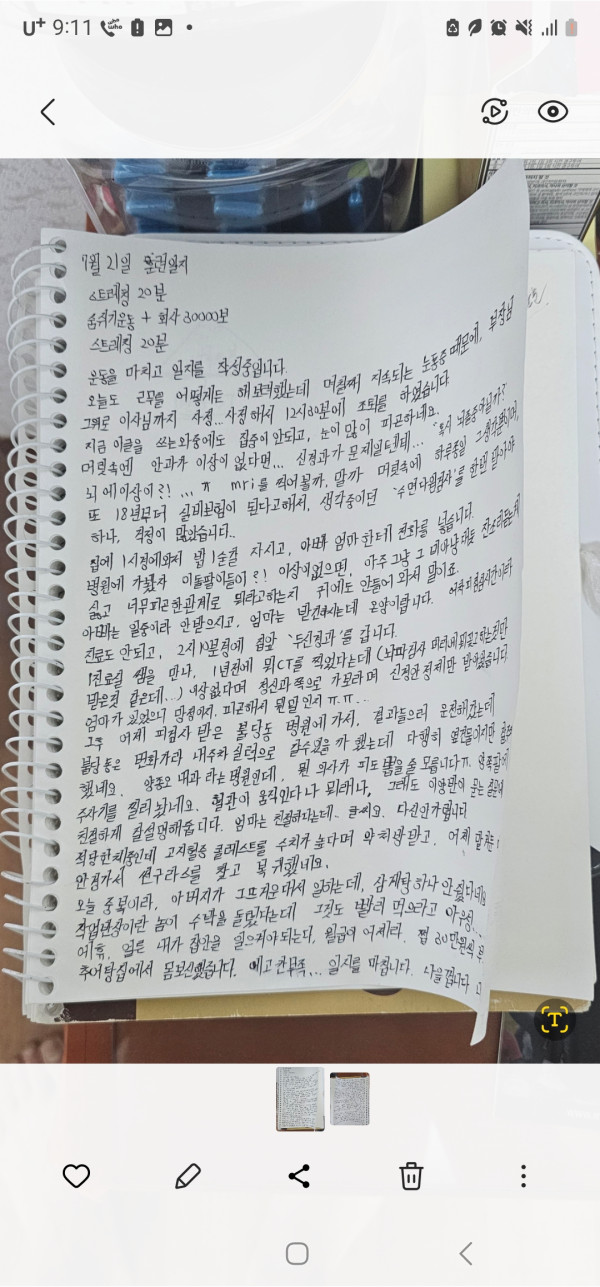 U+ 9:11
7월 21일 훈련일지
스트레칭 20분
숨쉬기운동 + 회사 30000보
스트레칭 20분
운동을 마치고 일지를 작성중입니다.
오늘도 근무를 어떻게든 해보려했는데 며칠째 지속되는 눈통증 때문에, 부장님
그위로 이사님까지 사정... 사정해서 12시30분에 조퇴를 하였습니다.
지금 이글을 쓰는와중에도 집중이 안되고, 눈이 많이 피곤하네요.
머릿속엔 안과가 이상이 없다면... 신경과가 문제일텐데... "혹시 뇌졸중아닐까?
뇌에이상이?! ... ㅠ mri를 찍어볼까, 말까 머릿속에 하루종일 그생각뿐이며,
또 18년부터 실비보험이 된다고해서, 생각중이던 '수면다원검사'를 한번 받아야
하나, 걱정이 많았습니다..
집에 1시경에와서 밥 1숟갈 자시고, 아빠 엄마한테 전화를 넣습니다.
병원에 가봤자 이돌팔이들이?! 이상이없으면, 아주 그냥 그
싫고 너무피곤한관계로 뭐라고하는지 귀에도 안들어 와서 말이죠.
아빠는 일중이라 안받으시고, 엄마는 받긴하시는데 온양이랍니다.
진료도 안되고, 2시10분경에 집앞 '두신경과'를 갑니다.
1진료실 쌤을 만나, 1년전에 뇌CT를 찍었다는데 (뇌파검사
받은것 같은데...) 이상없다며 정신과쪽으로 가보라며 신경안정제만 받아왔습니다
엄마가 있었으니 망정이지, 피곤해서 원 ㅠㅠ...
그후 어제 피검사 받은 불당동 병원에 가서, 결과들으러 운전해갔는데
불당동은 번화가라 내주차실력으로 갈수있을까 했는데 다행히
했네요. 양종오 내과 라는병원인데, 뭔 의사가 피도 뽑을줄 모릅니다ㅠ
주사기를 찔러놨네요. 혈관이 움직인다나 뭐래나,
친절하게 잘설명해줍디다. 엄마는 친절하다는데.. 글쎄요. 다신안가렵니다
적당한체중인데 고지혈증 콜레스트롤 수치가 높다며 약처방받고, 어제
안경가서 썬구라스를 찾고 복귀했네요.
오늘 중복이라, 아버지가 그뜨거운데서 일하는데, 삼계탕하나 안줬다네요
작업반장이란 놈이 수박을 돌렸다는데 그것도 빨리 먹으라고 아우성...
에휴, 얼른 내가 집안을 일으켜야되는데, 월급이 어제라. 쩝 30만원씩
추어탕집에서 몸보신했습니다. 에고 잔부족... 일지를 마칩니다.